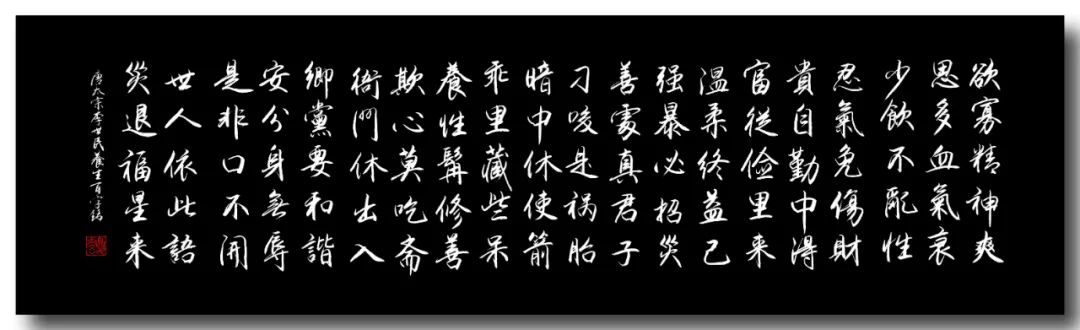 欲寡精神爽
思多血氣衰
少飲不亂性
忍氣免傷財
貴自勤中得
富從儉里来
温柔終益己
强暴必招災
善處真君子
刁唆是祸胎
暗中休使箭
乖里藏些呆
養性髯修善
欺心莫吃斋
衙門休出入
鄉黨要和諧
安分身無辱
是非口不開
世人依此語
災退福星来
唐太宗李世民養生百字銘